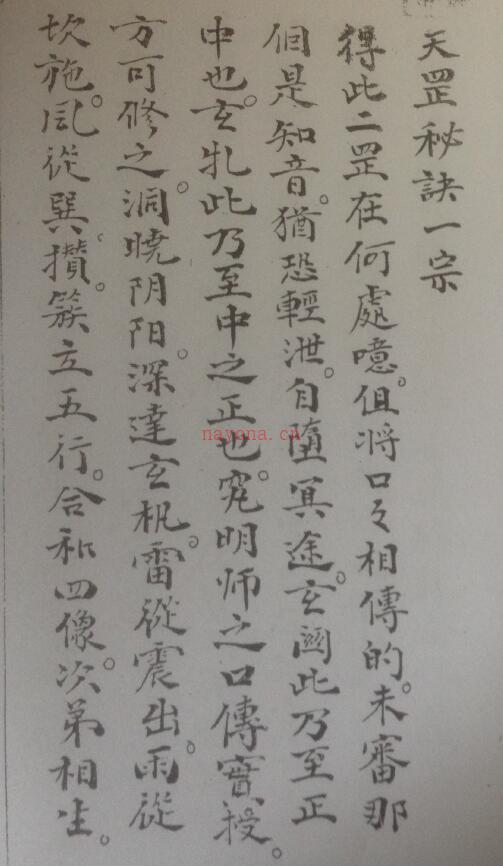 天罡秘訣一宗
得此二罡在何處噫。但将口々相傳的。未審那
個是知音。猶恐輕泄。自墮冥途。玄関此乃至正
中也。玄牝此乃至中之正也。究明师之口傳實授。
方可修之。洞曉阴阳。深達玄机。雷從震出。雨從
坎施。風從巽。攢。簇立五行。合和四像。次第相生。
nayona.cn